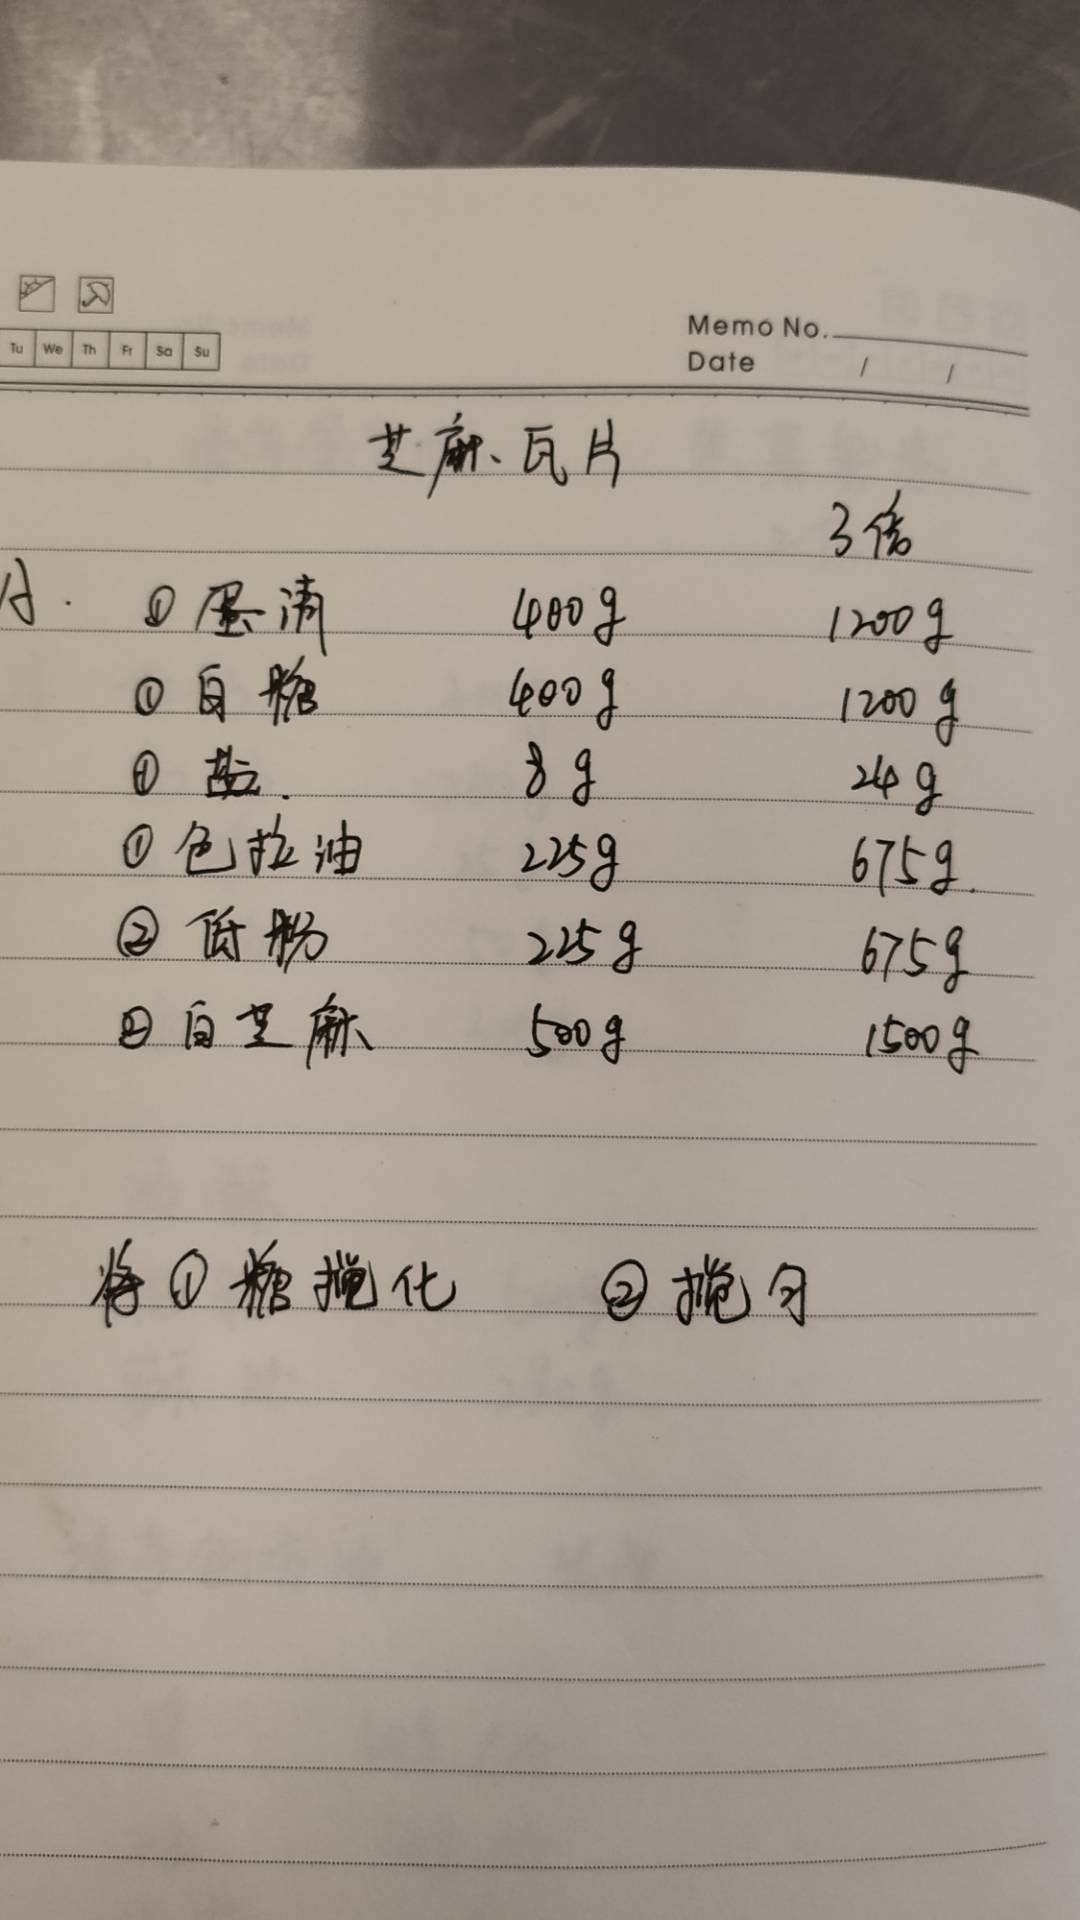 Tu We Th Fr Sa Su
Memo No.
Date / /
芝麻瓦片
3倍
A. ①蛋清 400g 1200g
①白糖 400g 1200g
①盐. 8g 24g
①色拉油 225g 675g.
②低粉 225g 675g
②白芝麻 500g 1500g
将①糖搅化 ②搅匀